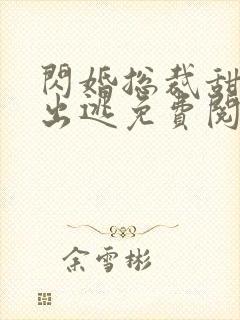 閃婚總裁甜
出逃免費閱
余雪彬